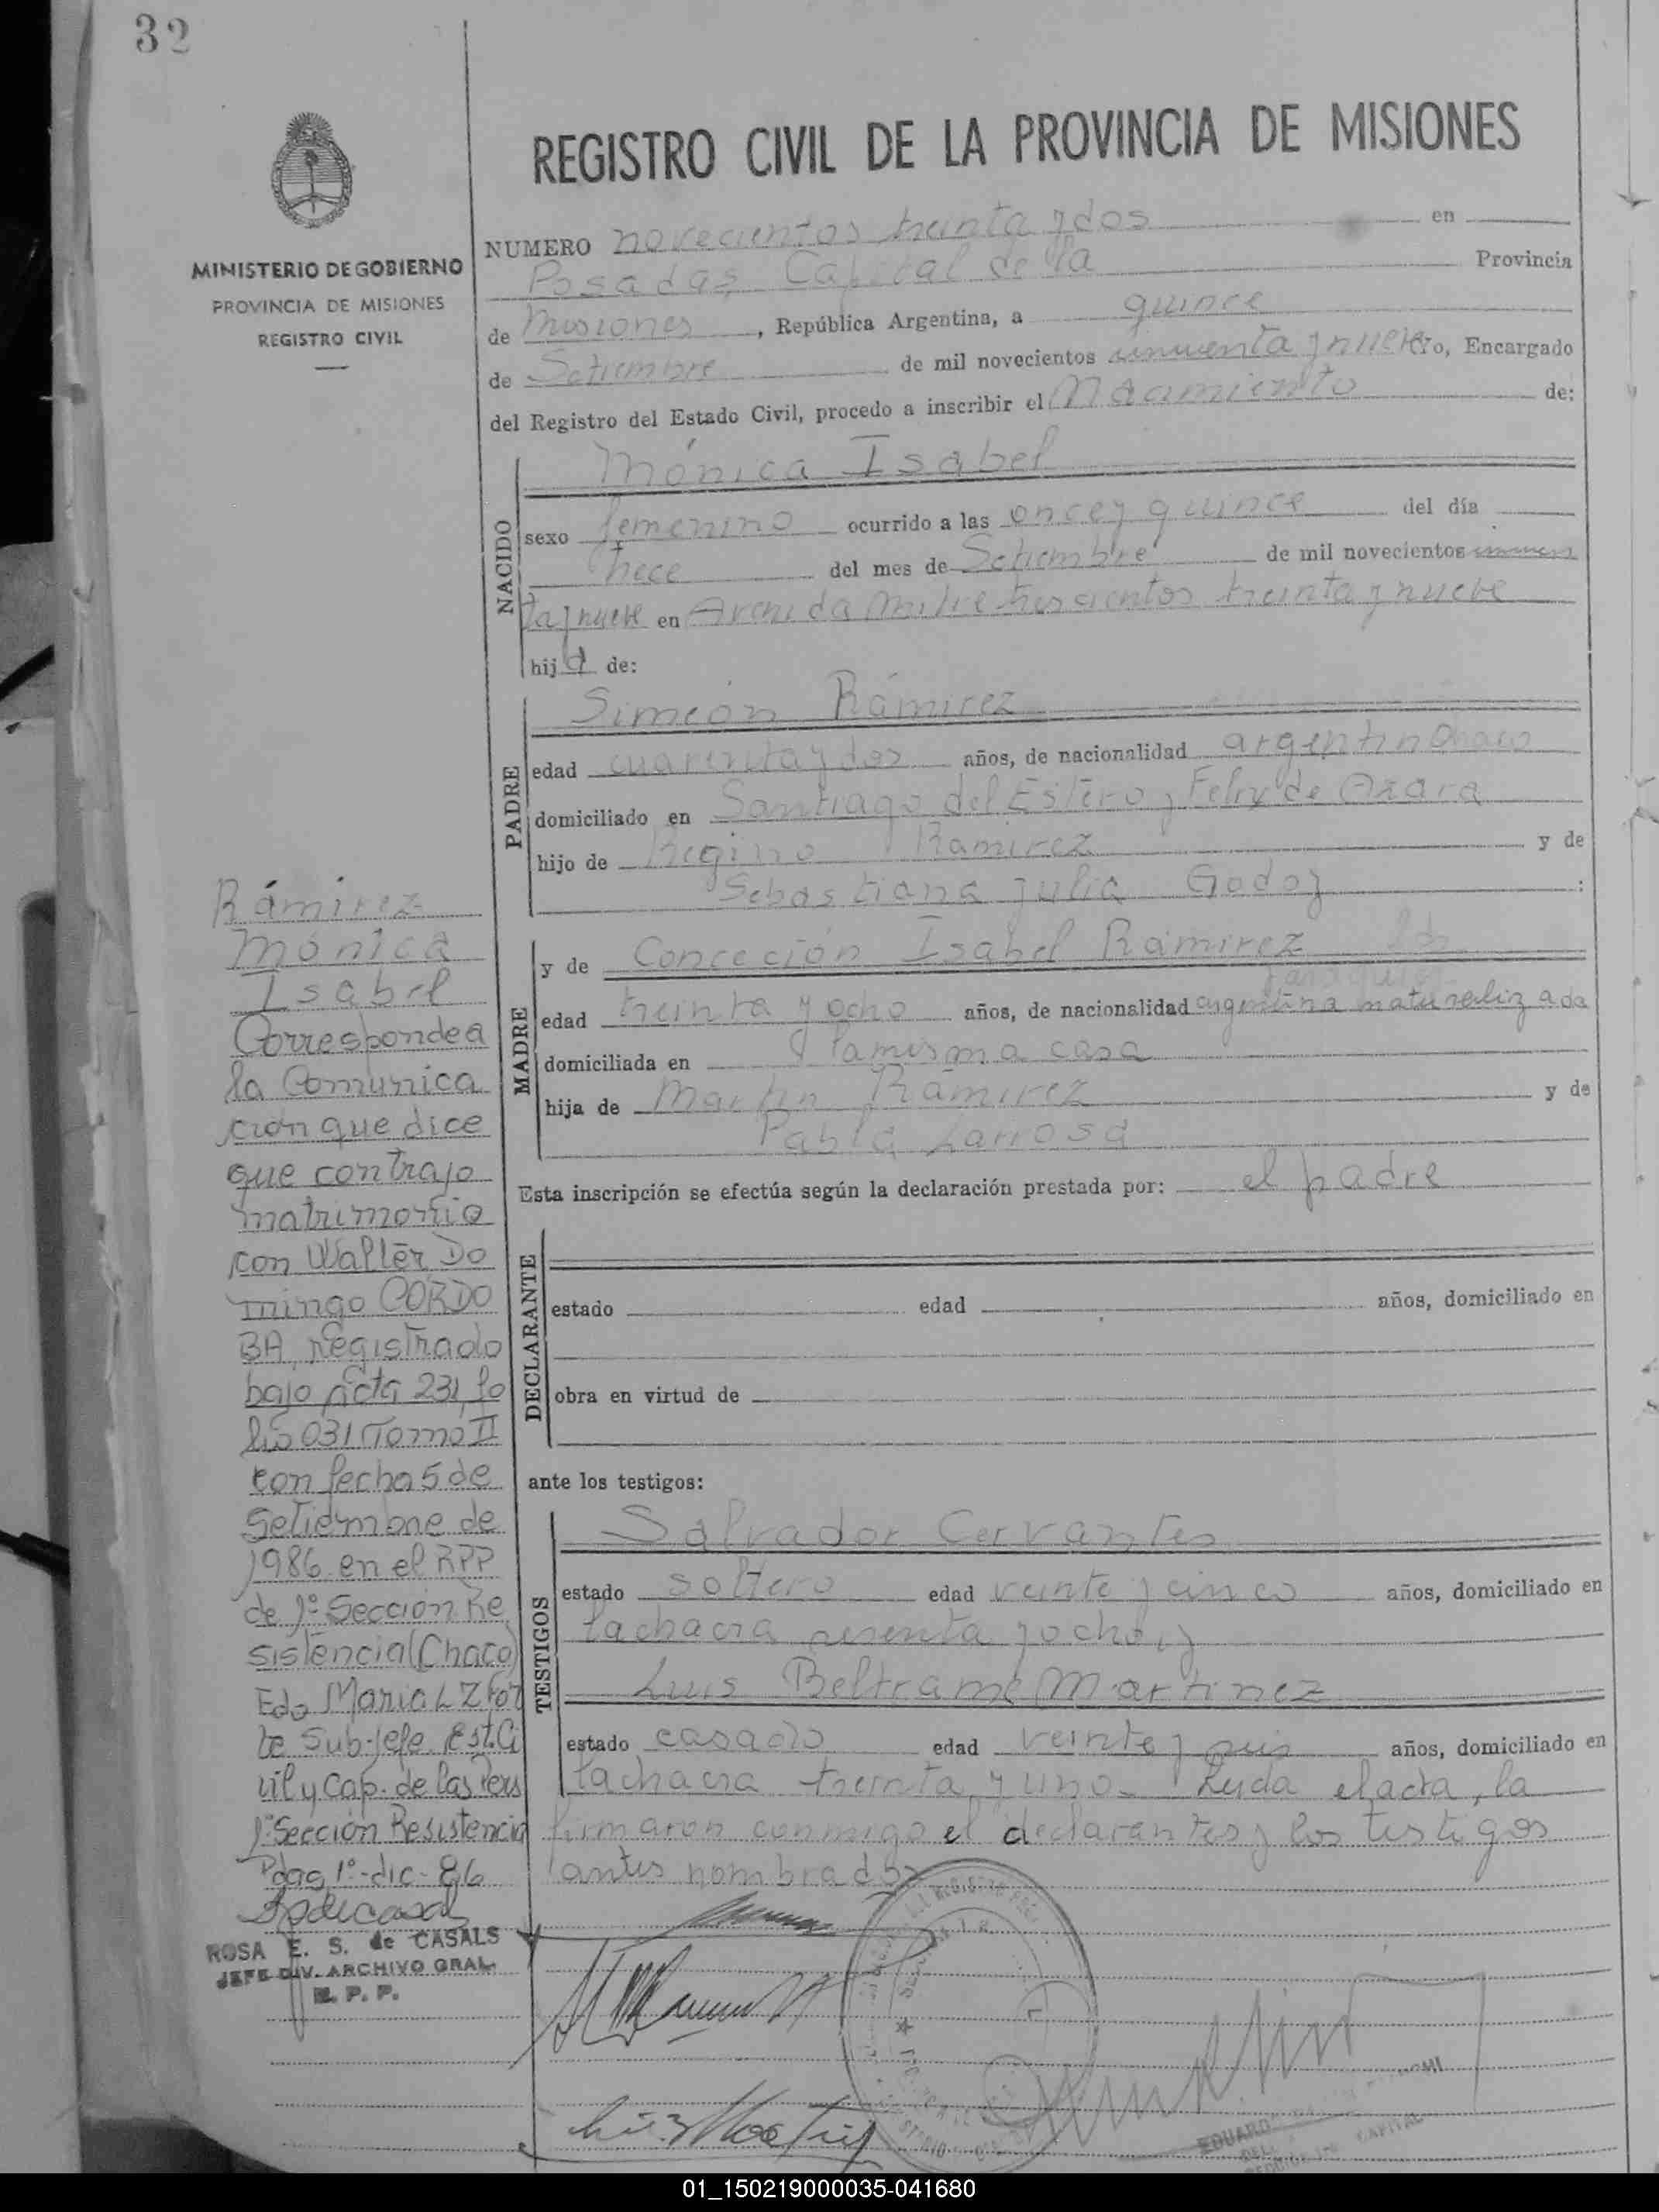 32
REGISTRO CIVIL DE LA PROVINCIA DE MISIONES
MINISTERIO DE GOBIERNO
PROVINCIA DE MISIONES
REGISTRO CIVIL
NUMERO novecientos treinta y dos en
Posadas Capital de la Provincia
de Misiones, República Argentina, a quince
de Setiembre de mil novecientos cincuenta y nueve Yo, Encargado
del Registro del Estado Civil, procedo a inscribir el Nacimiento de:
NACIDO
Mónica Isabel
sexo femenino ocurrido a las once y quince del día
trece del mes de Setiembre de mil novecientos cincuen
ta y nueve en Avenida Mitre trescientos treinta y nueve
hija de:
PADRE
Simeón Rámirez
edad cuarenta y dos años, de nacionalidad argentino
domiciliado en Santiago del Estero y Felix de Azara
hijo de Regino Ramirez y de
Sebastiana Julia Godoy :
MADRE
y de Conceción Isabel Rámirez
edad treinta y ocho años, de nacionalidad argentina naturalizada
domiciliada en la misma casa
hija de Martin Rámirez y de
Pabla Larrosa
Esta inscripción se efectúa según la declaración prestada por: el padre
DECLARANTE
estado edad años, domiciliado en
obra en virtud de
ante los testigos:
TESTIGOS
Salvador Cervantes
estado soltero edad veinte y cinco años, domiciliado en
la chacra sesenta y ocho, y
Luis Beltrame Martinez
estado casado edad veinte y seis años, domiciliado en
la chacra treinta y uno. Leida el acta, la
firmaron conmigo el declarantes y los testigos
antes nombrados
Rámirez
Mónica
Isabel
Corresponde a
la Comunica
ción que dice
que contrajo
matrimonio
con Walter Do
mingo CORDO
BA, registrado
bajo Acta 231, fo
lio 031 Tomo II
con fecha 5 de
Setiembre de
1986 en el RPP
de 1º Sección Re
sistencia (Chaco)
Fdo Maria L
Sub-jefe Est. Ci
vil y Cap. de las Pers
1º Sección Resistencia
Pdas 1º-dic-86
ROSA E. S. de CASALS
JEFE DIV. ARCHIVO GRAL.
R. P. P.
01_150219000035-041680